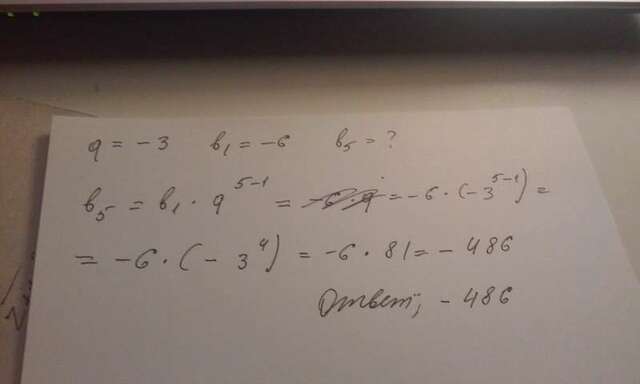 q = -3 b₁ = -6 b₅ = ?
b₅ = b₁ · q⁵⁻¹ = = -6 · (-3⁵⁻¹) =
= -6 · (-3⁴) = -6 · 81 = - 486
Ответ; - 486